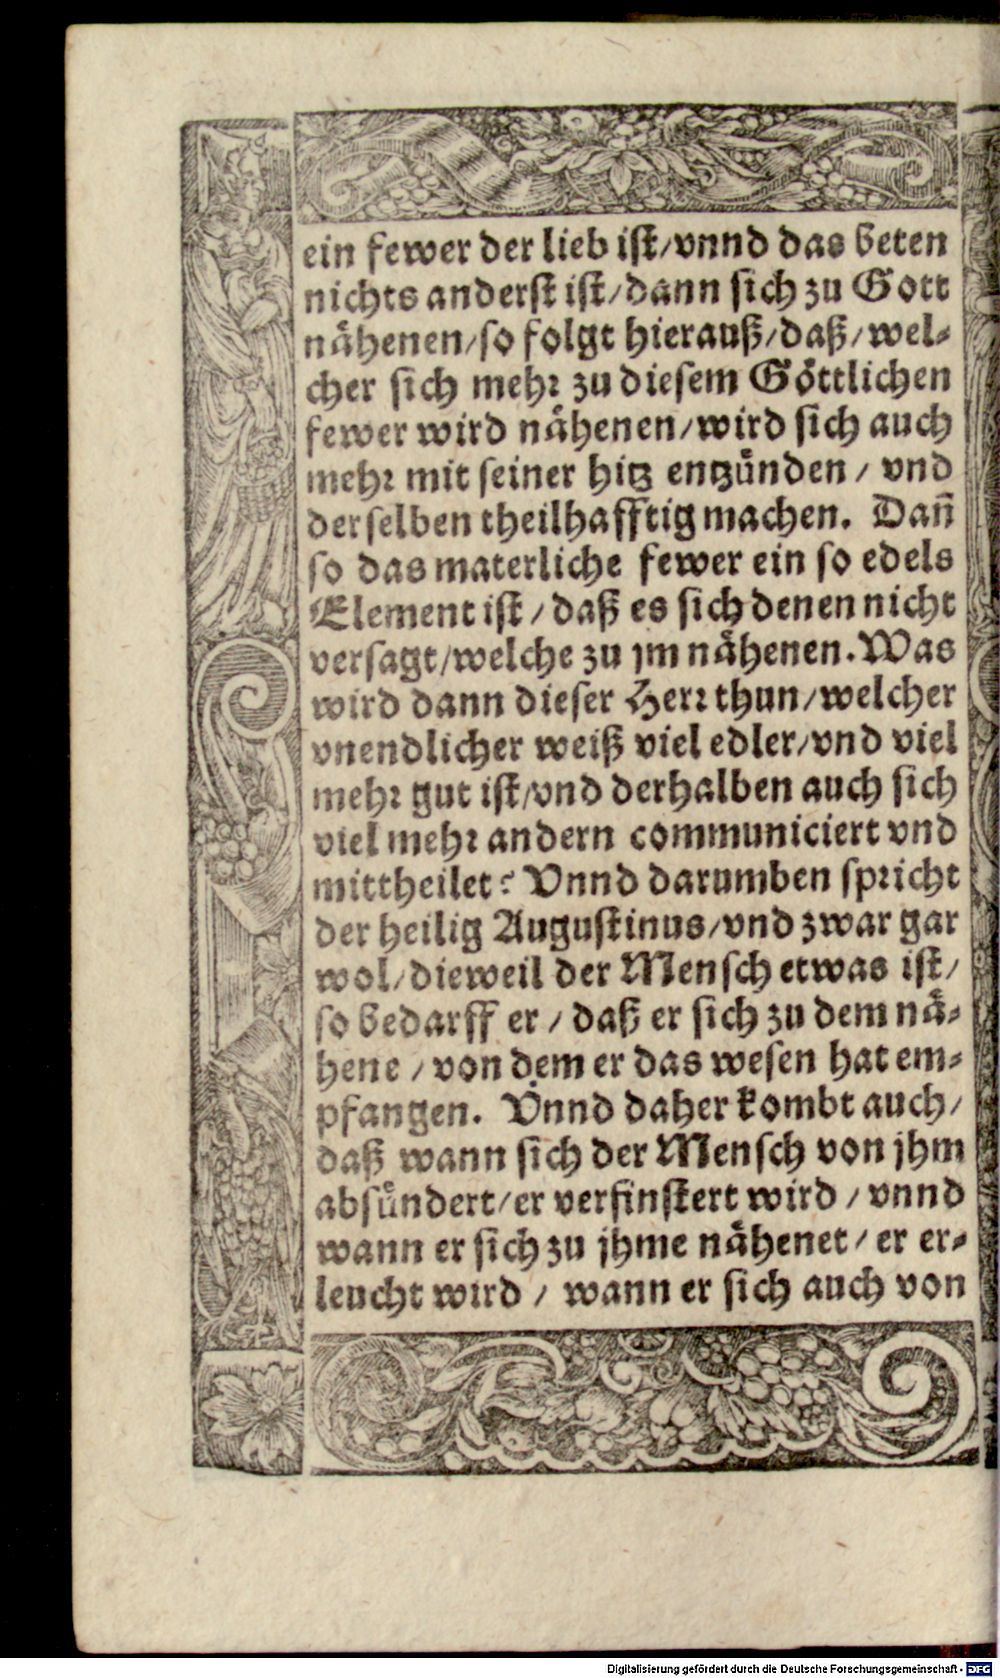 ein fewer der lieb iſt/vnnd das beten
nichts anderſt iſt/dann ſich zu Gott
nähenen/ſo folgt hierauß/daß/wel⸗
cher ſich mehr zu dieſem Göttlichen
fewer wird nähenen/wird ſich auch
mehr mit ſeiner hitz entzünden / vnd
derſelben theilhafftig machen. Dañ
ſo das materliche fewer ein ſo edels
Element iſt / daß es ſich denen nicht
verſagt/welche zu jm nähenen. Was
wird dann dieſer Herr thun/welcher
vnendlicher weiß viel edler/vnd viel
mehr gut iſt/vnd derhalben auch ſich
viel mehr andern communiciert vnd
mittheilet? Vnnd darumben ſpricht
der heilig Auguſtinus/vnd zwar gar
wol/dieweil der Menſch etwas iſt/
ſo bedarff er / daß er ſich zu dem nä⸗
hene / von dem er das weſen hat em⸗
pfangen. Vnnd daher kombt auch/
daß wann ſich der Menſch von jhm
abſündert/er verfinſtert wird / vnnd
wann er ſich zu jhme nähenet / er er⸗
leucht wird / wann er ſich auch von
Digitalisierung gefördert durch die Deutsche Forschungsgemeinschaft - DFG